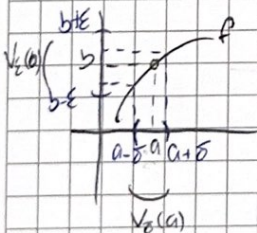 b+ε
f
V_ε(b)
b
b-ε
a-δ a a+δ
V_δ(a)